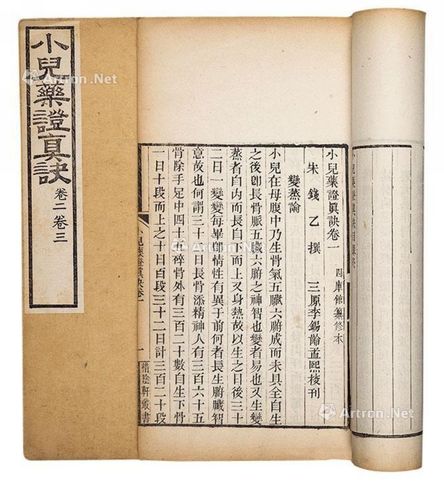 小兒藥證眞訣卷一
四庫館纂修本
宋錢乙撰　三原李錫齡孟熙校刊
變蒸論
小兒在母腹中乃生骨氣五臟六腑成而未具全自生
之後即長骨脈五臟六腑之神智也變者易也又生變
蒸者自內而長自下而上又身熱故以生之日後三十
二日一變變每畢即情性有異于前何者長生腑臟智
意故也何謂三十二日長骨添精神人有三百六十五
骨除手足中四十五碎骨外有三百二十數自生下骨
一日十段而上之十日百段三十二日計三百二十段
小兒藥證眞訣卷一
一
惜陰軒叢書
小兒藥證眞訣
卷二卷三
Artron.Net
Artron.Net
Artron.Net
Artron.Net